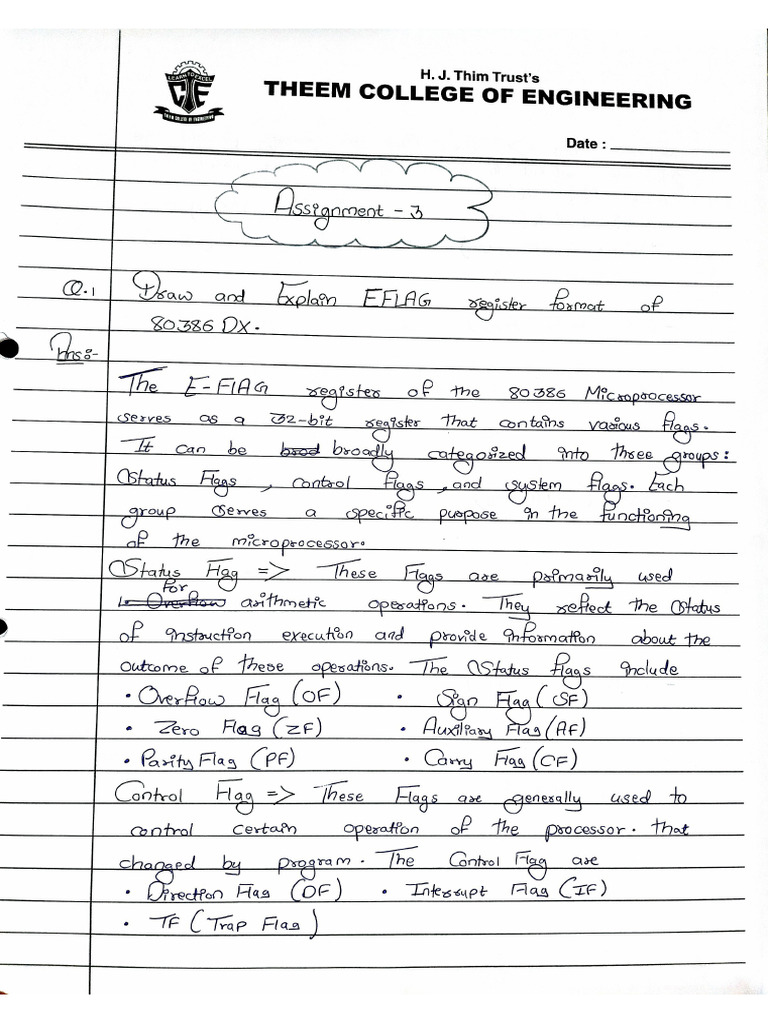 H. J. Thim Trust's
THEEM COLLEGE OF ENGINEERING
Date :
Assignment - 3
Q.1 Draw and Explain EFLAG register format of
80386 DX.
Ans:-
The E-FLAG register of the 80386 Microprocessor
serves as a 32-bit register that contains various flags.
It can be broad broadly categorized into three groups:
Status Flags, control flags, and system flags. Each
group serves a specific purpose in the functioning
of the microprocessor.
Status Flag => These Flags are primarily used
for
1. Overflow arithmetic operations. They reflect the status
of instruction execution and provide information about the
outcome of these operations. The Status flags include
• Overflow Flag (OF) • Sign Flag (SF)
• Zero Flag (ZF) • Auxiliary Flag (AF)
• Parity Flag (PF) • Carry Flag (CF)
Control Flag => These Flags are generally used to
control certain operation of the processor. that
changed by program. The Control Flag are
• Direction Flag (DF) • Interrupt Flag (IF)
• TF (Trap Flag)